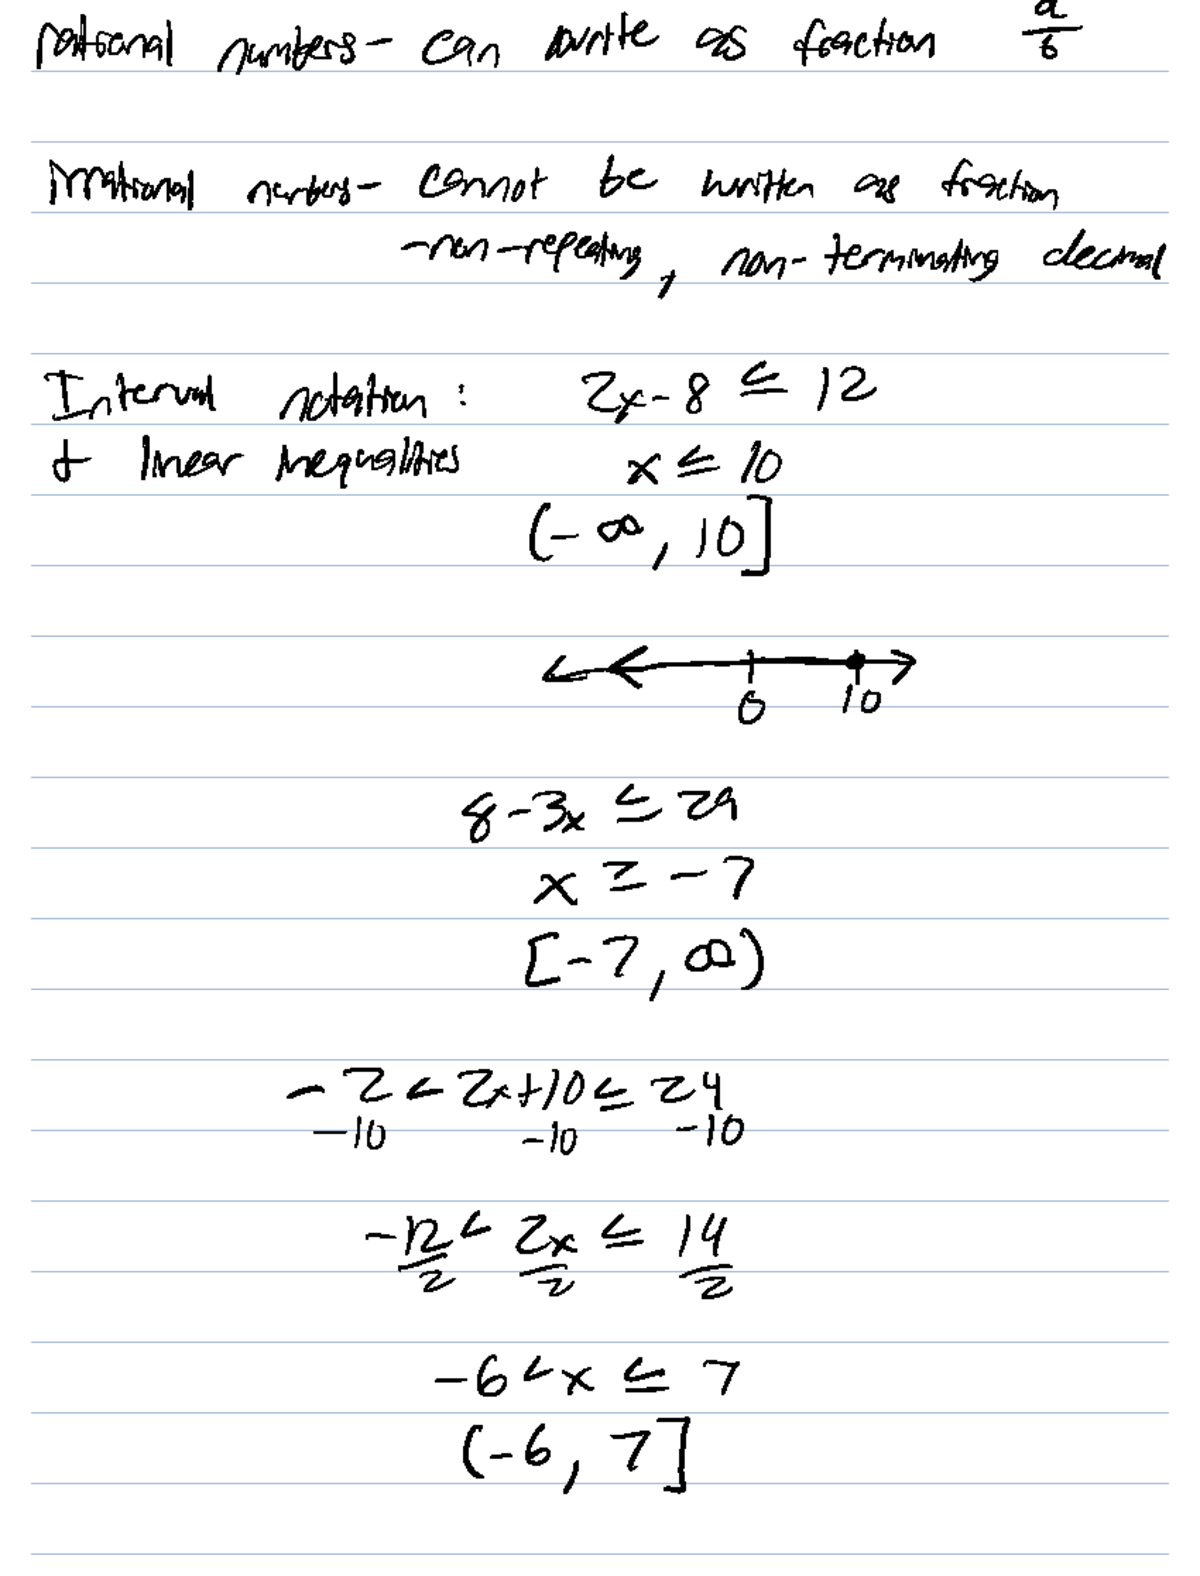 rational numbers - can write as fraction a/b
irrational numbers - cannot be written as fraction
- non-repeating, non-terminating decimal
Interval notation : 2x - 8 ≤ 12
+ linear inequalities x ≤ 10
(-∞, 10]
0 10
8 - 3x ≤ 29
x ≥ -7
[-7, ∞)
-2 < 2x + 10 ≤ 24
-10 -10 -10
-12/2 < 2x/2 ≤ 14/2
-6 < x ≤ 7
(-6, 7]